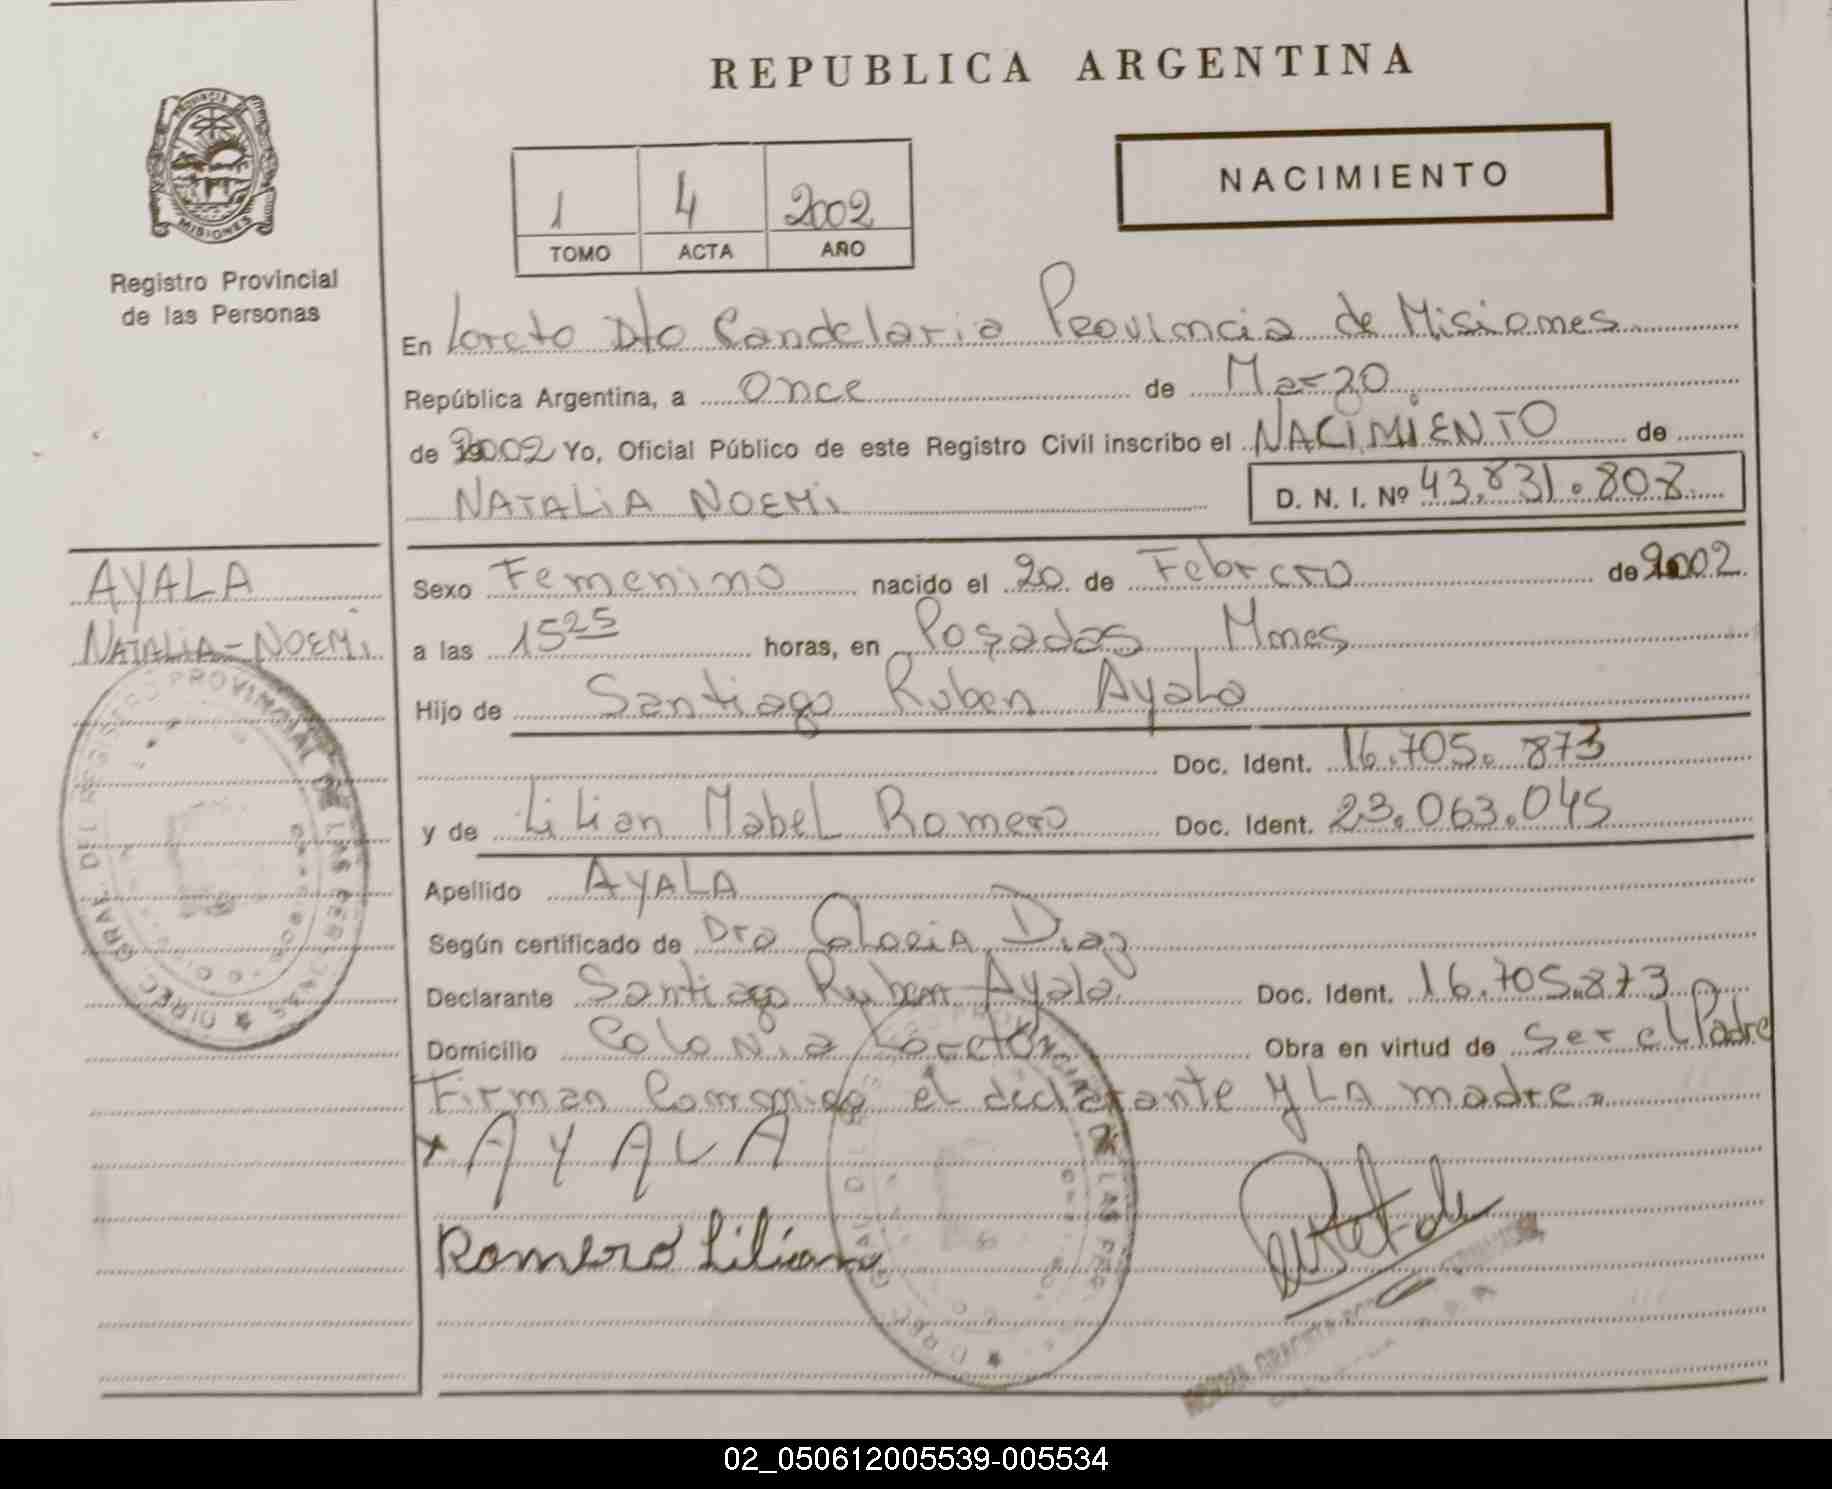 REPUBLICA ARGENTINA
NACIMIENTO
PROVINCIA DE
MISIONES
Registro Provincial
de las Personas
1 4 2002
TOMO ACTA AÑO
En Loreto Dto Candelaria Provincia de Misiones
República Argentina, a Once de Marzo
de 2002 Yo, Oficial Público de este Registro Civil inscribo el NACIMIENTO de
NATALIA NOEMI D. N. I. Nº 43.831.808
AYALA
NATALIA-NOEMI
Sexo Femenino nacido el 20 de Febrero de 2002
a las 15 25 horas, en Posadas Mnes
Hijo de Santiago Ruben Ayala
Doc. Ident. 16.705.873
y de Lilian Mabel Romero Doc. Ident. 23.063.045
Apellido AYALA
Según certificado de Dra Gloria Diaz
Declarante Santiago Ruben Ayala Doc. Ident. 16.705.873
Domicilio Colonia Loreto Obra en virtud de Ser el Padre
Firman Conmigo el declarante y LA madre
x AYALA
Romero Lilian
REGISTRO PROVINCIAL DE LAS PERSONAS
DIREC. GRAL DEL
02_050612005539-005534